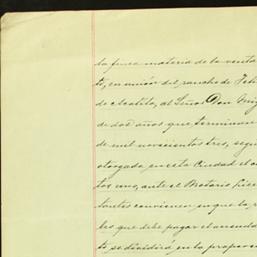 la finca materia de la venta
to, en union del rancho de Feli
de Acatita, al Señor Don Mig
de dos años que terminan
de mil novecientos tres, segu
otorgada en esta Ciudad el
tos uno, ante el Notario Lice
tantes convienen en que la r
les que debe pagar el arrenda
to se dividirá, en la proporci